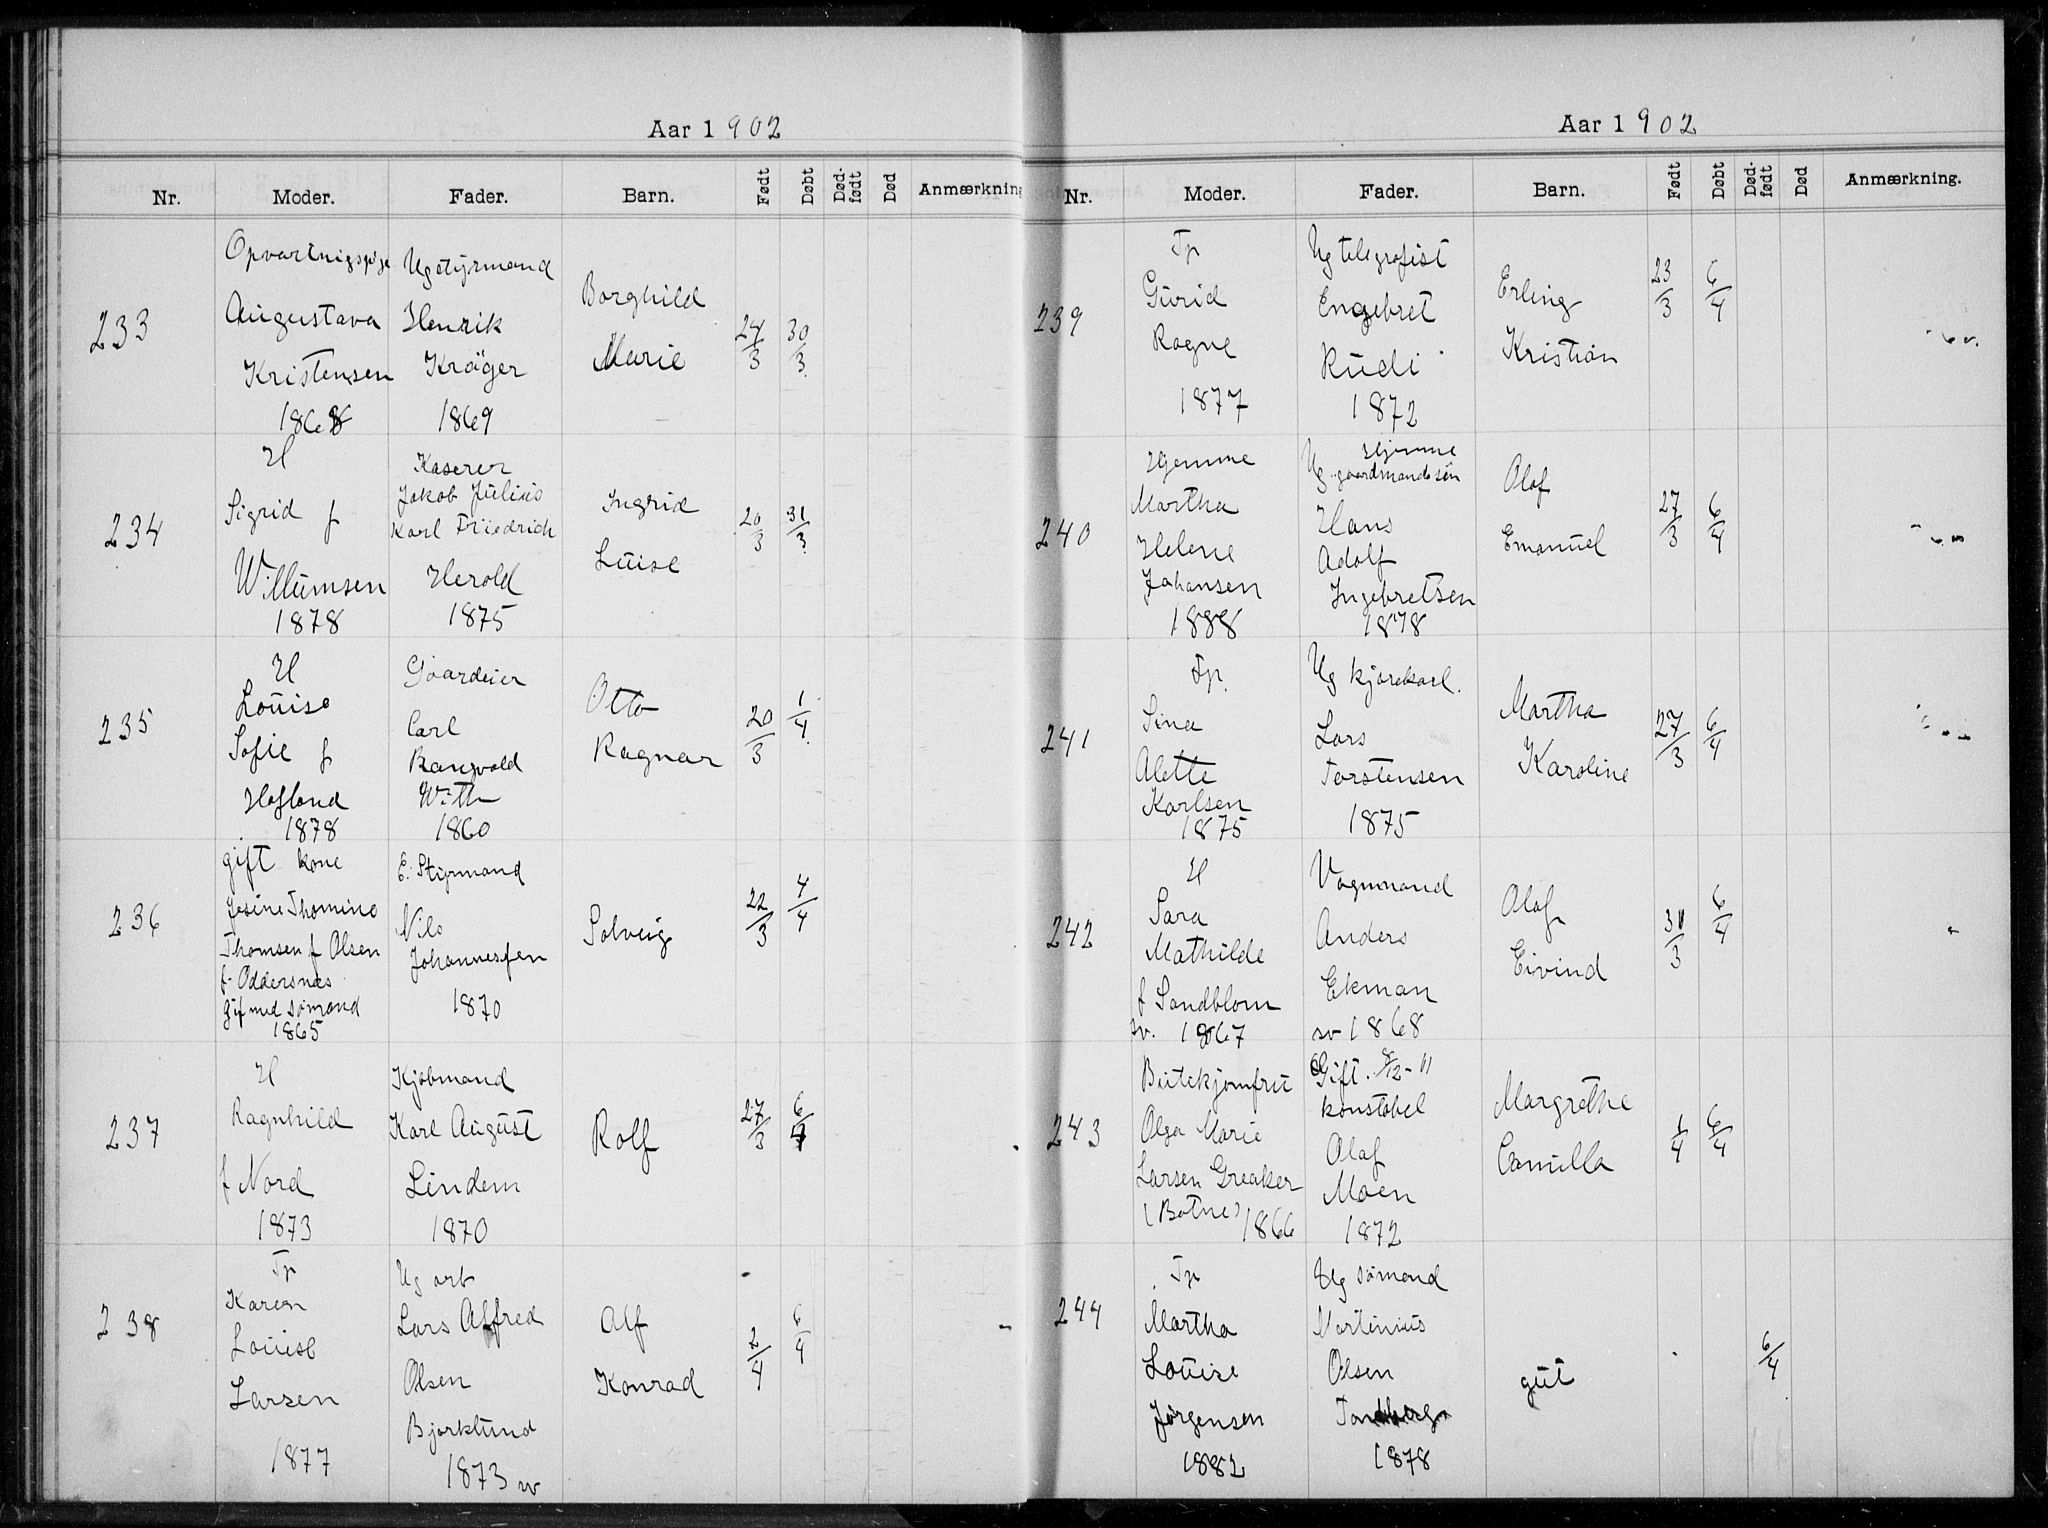 Aar 1902
Nr. Moder. Fader. Barn. Født Døbt Død-født Død Anmærkning
233
Opvartningspige
Augustava
Kristensen
1868
Ug styrmand
Henrik
Kröger
1869
Borghild
Marie
24/3
30/3
234
H
Sigrid f
Willumsen
1878
Kaserer
Jakob Julius
Karl Friedrich
Herold
1875
Ingrid
Luise
20/3
31/3
235
H
Louise
Sofie f
Hofland
1878
Gaardeier
Carl
Rangvald
With
1860
Otto
Ragnar
20/3
1/4
236
gift kone
Jesine Thomine
Thomsen f Olsen
f. Oddersnæs
Gif med sømand
1865
E. Styrmand
Nils
Johannessen
1870
Solveig
22/3
4/4
237
H
Ragnhild
f Nord
1873
Kjøbmand
Karl August
Lindem
1870
Rolf
27/3
6/4
238
Tp
Karen
Louise
Larsen
1877
Ug arb
Lars Alfred
Olsen
Bjørklund
1873 sv
Alf
Konrad
2/4
6/4
Aar 1902
Nr. Moder. Fader. Barn. Født Døbt Død-født Død Anmærkning.
239
Tp
Gurid
Rogne
1877
Ug telegrafist
Engebret
Rudi
1872
Erling
Kristian
23/3
6/4
240
Hjemme
Martha
Helene
Johansen
1888
Hjemme
Ug. gaardmandssøn
Hans
Adolf
Ingebretsen
1878
Olaf
Emanuel
27/3
6/4
241
Tp.
Sina
Alette
Karlsen
1875
Ug kjørekarl.
Lars
Torstensen
1875
Martha
Karoline
27/3
6/4
242
H
Sara
Mathilde
f Sandblom
sv. 1867
Vognmand
Anders
Ekman
sv 1868
Olaf
Eivind
30/3
6/4
243
Butikjomfru
Olga Marie
Larsen Greaker
(Botne) 1866
Gift. 8/12-11
konstabel
Olaf
Moen
1872
Margrethe
Camilla
1/4
6/4
244
Tp
Martha
Louise
Jørgensen
1882
Ug sømand
Martinius
Olsen
Tandberg
1878
gut
6/4